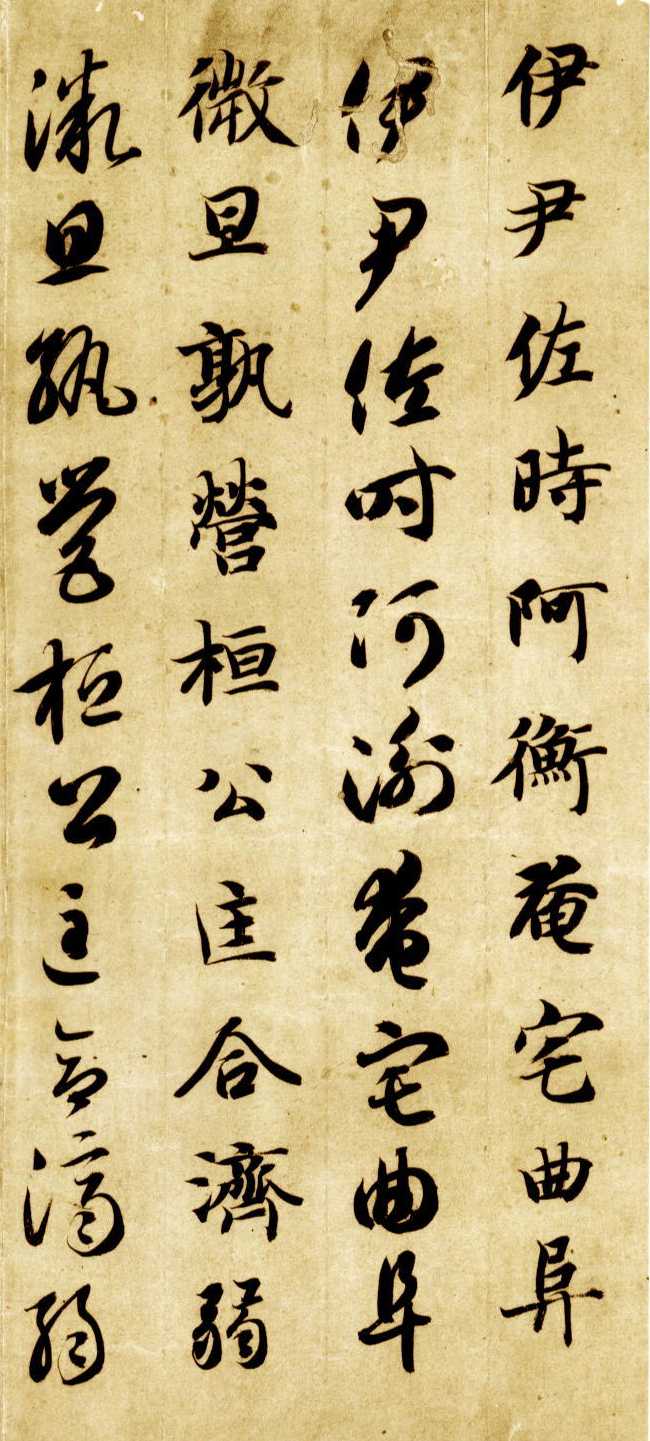 伊尹佐時阿衡奄宅曲阜
伊尹佐時阿衡奄宅曲阜
微旦孰營桓公匡合濟弱
微旦孰營桓公匡合濟弱